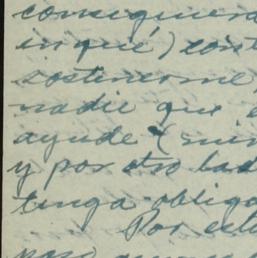 conseguiera
in que) cont
sostenerme,
nadie que
ayude (mi
y por otro lad
tenga obliga
Por est